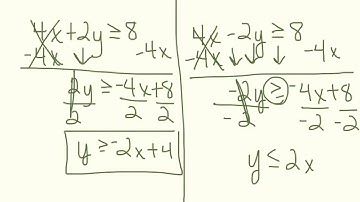 4x+2y≥8
-4x -4x
2y≥-4x+8
2 2 2
y≥-2x+4
4x-2y≥8
-4x -4x
-2y≥-4x+8
-2 -2 -2
y≤2x